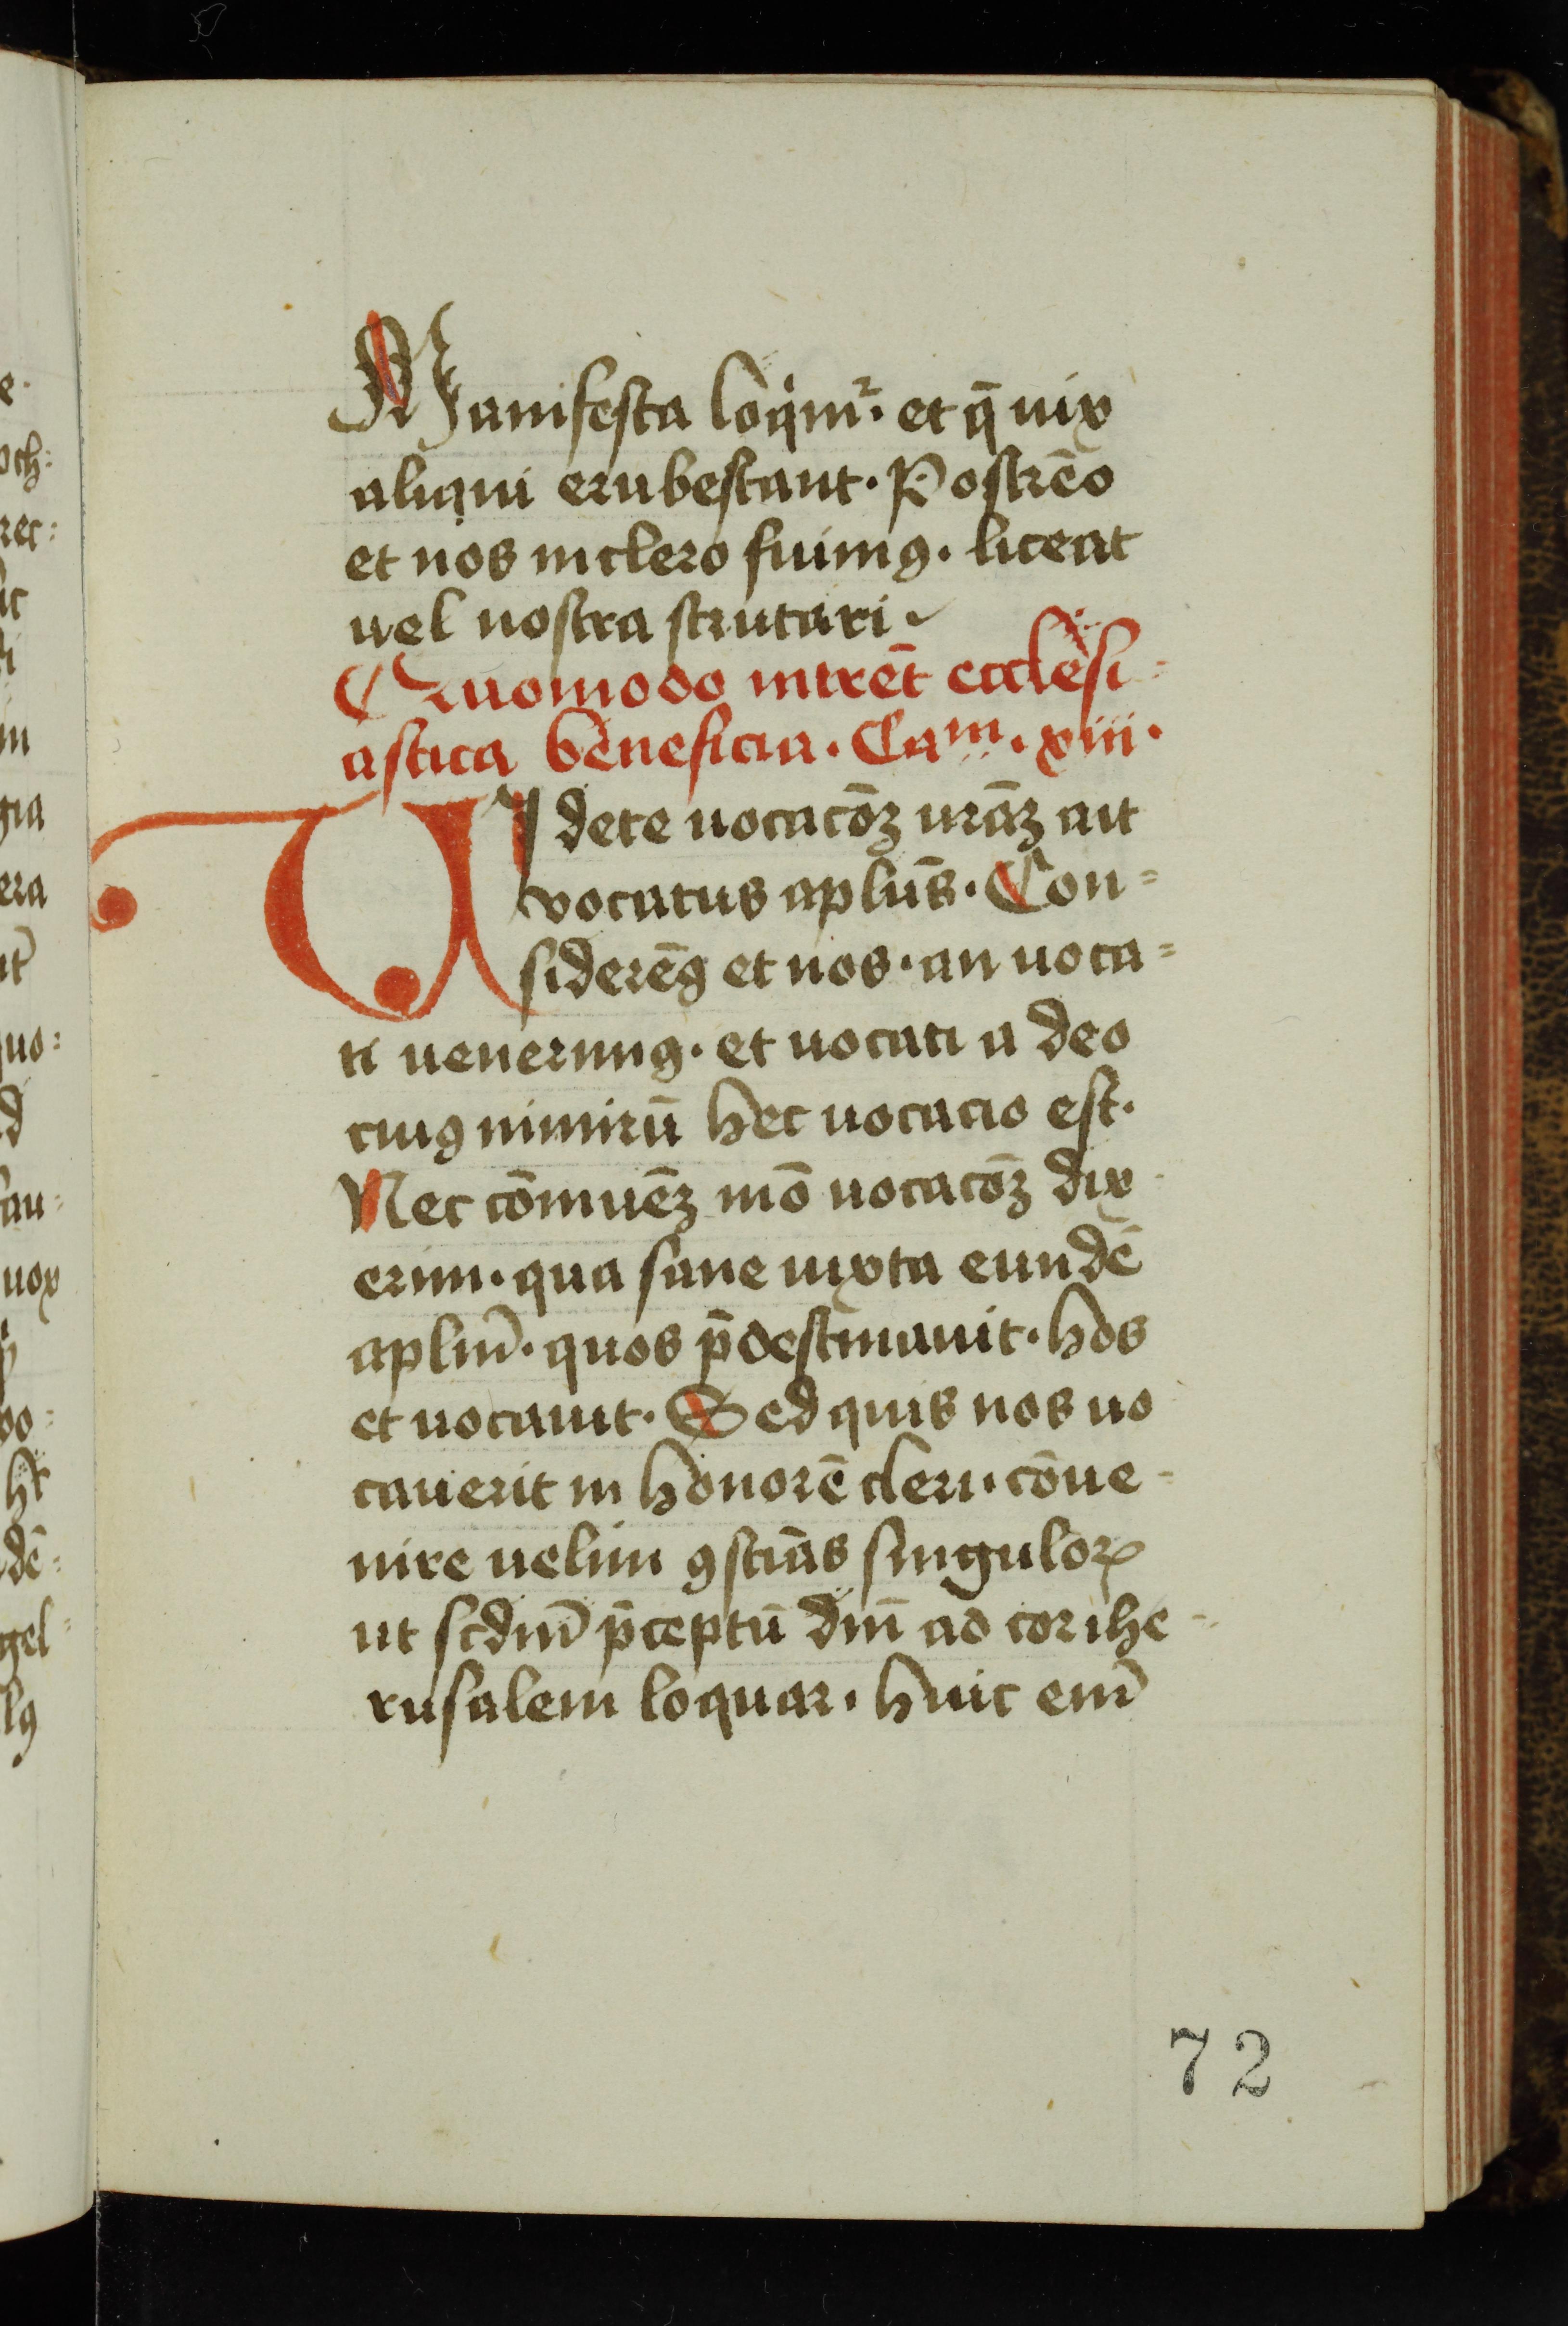 Manifesta loqim². et q̄ uix
aliqui erubescant. Postrēo
et nos in clero fuimꝰ. liceat
uel nostra scrutari.
Quomodo intrēt ecclesi=
astica beneficia. Cam. xiii.
VIdete uocacōꝫ urāꝫ ait
vocatus aplus̄. Con=
siderēꝰ et nos. an uoca=
ti uenerimꝰ. et uocati a deo
cuiꝰ nimirū hec uocacio est.
Nec cōmuēꝫ mō uocacōꝫ dix
erim. qua sane iuxta eundē
aplm̄. quos p̄destinauit. hos
et uocauit. Sed quis nos uo
cauerit in honorē cleri. cōue=
nire uelim ꝯsciās singuloꝝ
ut scdm̄ p̄ceptū dm̄ ad cor ihe=
rusalem loquar. huic em̄
72